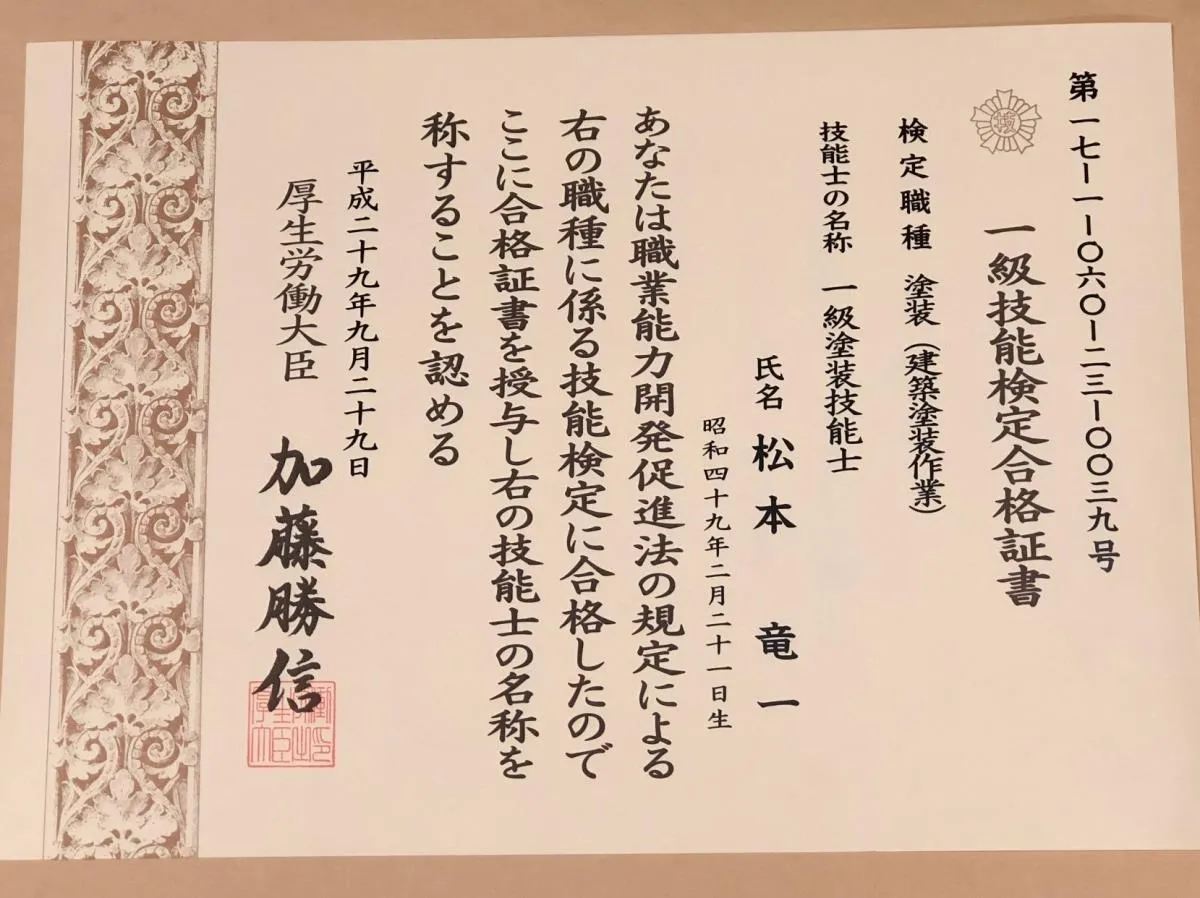 第一七ー一ー〇六〇ー二三ー〇〇三九号
一級技能検定合格証書
検定職種 塗装(建築塗装作業)
技能士の名称 一級塗装技能士
氏名 松本 竜一
昭和四十九年二月二十一日生
あなたは職業能力開発促進法の規定による
右の職種に係る技能検定に合格したので
ここに合格証書を授与し右の技能士の名称を
称することを認める
平成二十九年九月二十九日
厚生労働大臣 加藤勝信